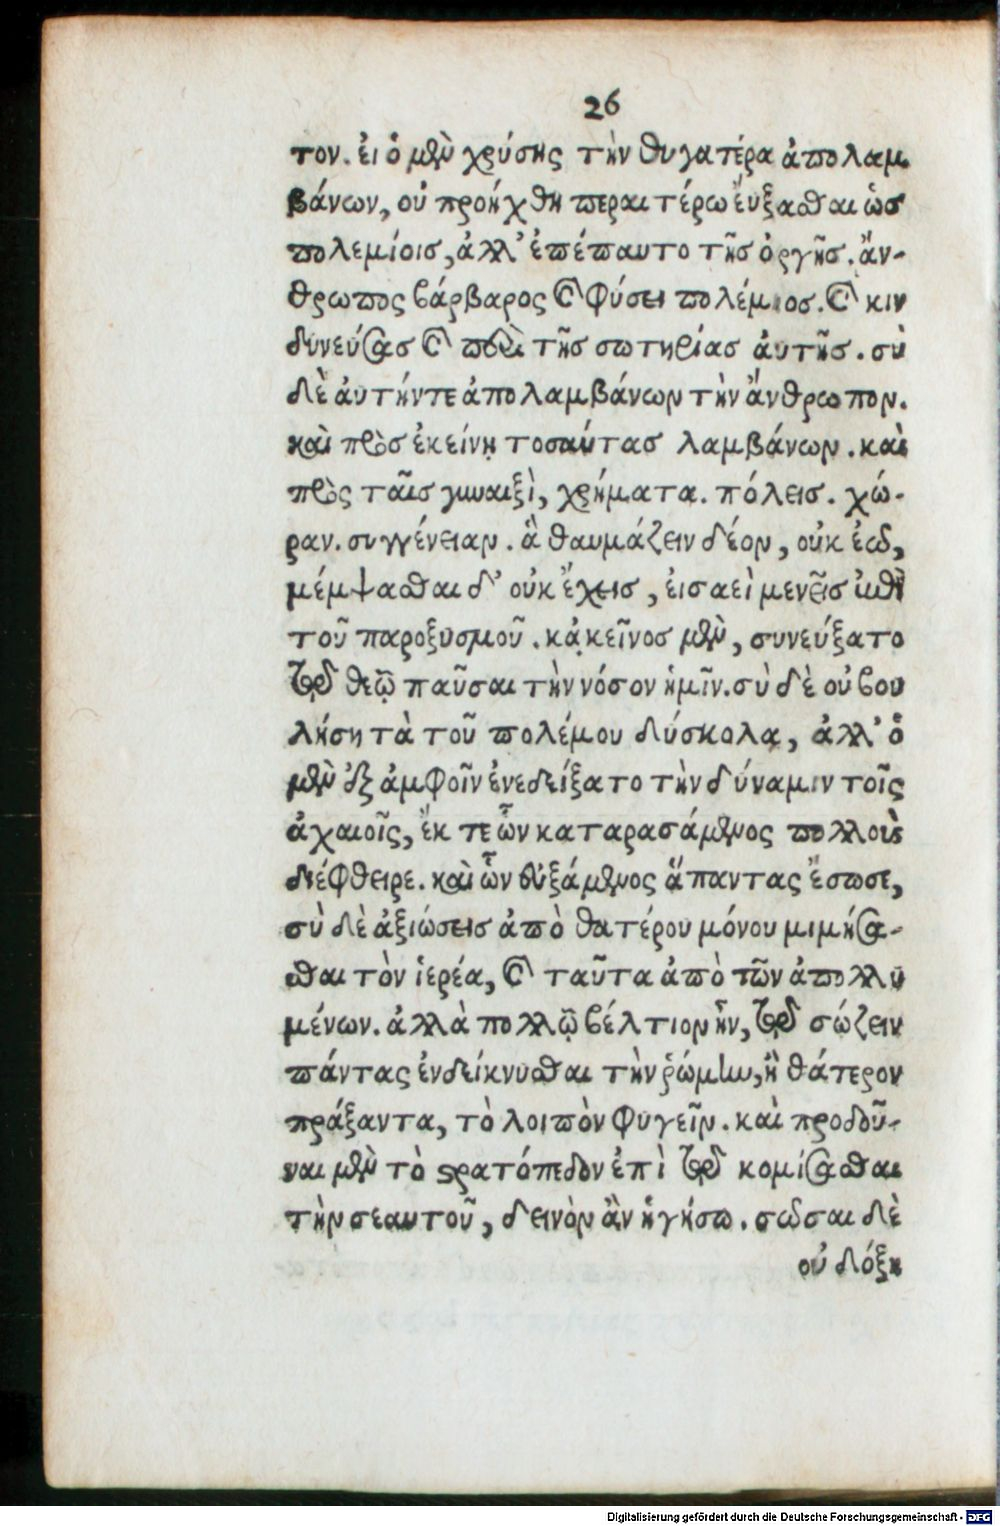 26
τον. ἐι ὁ μὲν χρύσης τὴν θυγατέρα ἀπολαμ
βάνων, οὐ προήχθη περαιτέρω ἔυξασθαι ὡς
πολεμίοις, ἀλλ’ ἐπέπαυτο τῆς ὀργῆς. ἄν-
θρωπος βάρβαρος καὶ φύσει πολέμιος. καὶ κιν
δυνεύσας καὶ περὶ τῆς σωτηρίας ἀυτῆς. σὺ
δὲ ἀυτήντε ἀπολαμβάνων τὴν ἄνθρωπον.
καὶ πρὸς ἐκείνῃ τοσαύτας λαμβάνων. καὶ
πρὸς ταῖς γυναιξὶ, χρήματα. πόλεις. χώ-
ραν. συγγένειαν. ἃ θαυμάζειν δέον, οὐκ ἐῶ,
μέμψασθαι δ’ οὐκ ἔχεις, ἐισαεὶ μενεῖς ἐπὶ
τοῦ παροξυσμοῦ. κἀκεῖνος μὲν, συνεύξατο
τῷ θεῷ παῦσαι τὴν νόσον ἡμῖν. σὺ δὲ οὐ βου
λήσῃ τὰ τοῦ πολέμου δύσκολα, ἀλλ’ ὁ
μὲν ἐξ ἀμφοῖν ἐνεδείξατο τὴν δύναμιν τοῖς
ἀχαιοῖς, ἔκ τε ὧν καταρασάμενος πολλοὺς
διέφθειρε. καὶ ὧν εὐξάμενος ἅπαντας ἔσωσε,
σὺ δὲ ἀξιώσεις ἀπὸ θατέρου μόνου μιμήσα-
σθαι τὸν ἱερέα, καὶ ταῦτα ἀπὸ τῶν ἀπολλυ
μένων. ἀλλὰ πολλῷ βέλτιον ἦν, τῷ σώζειν
πάντας ἐνδείκνυσθαι τὴν ῥώμην, ἢ θάτερον
πράξαντα, τὸ λοιπὸν φυγεῖν. καὶ προδοῦ-
ναι μὲν τὸ στρατόπεδον ἐπὶ τῷ κομίσασθαι
τὴν σεαυτοῦ, δεινὸν ἂν ἡγήσω. σῶσαι δὲ
οὐ δόξῃ
Digitalisierung gefördert durch die Deutsche Forschungsgemeinschaft - DFG